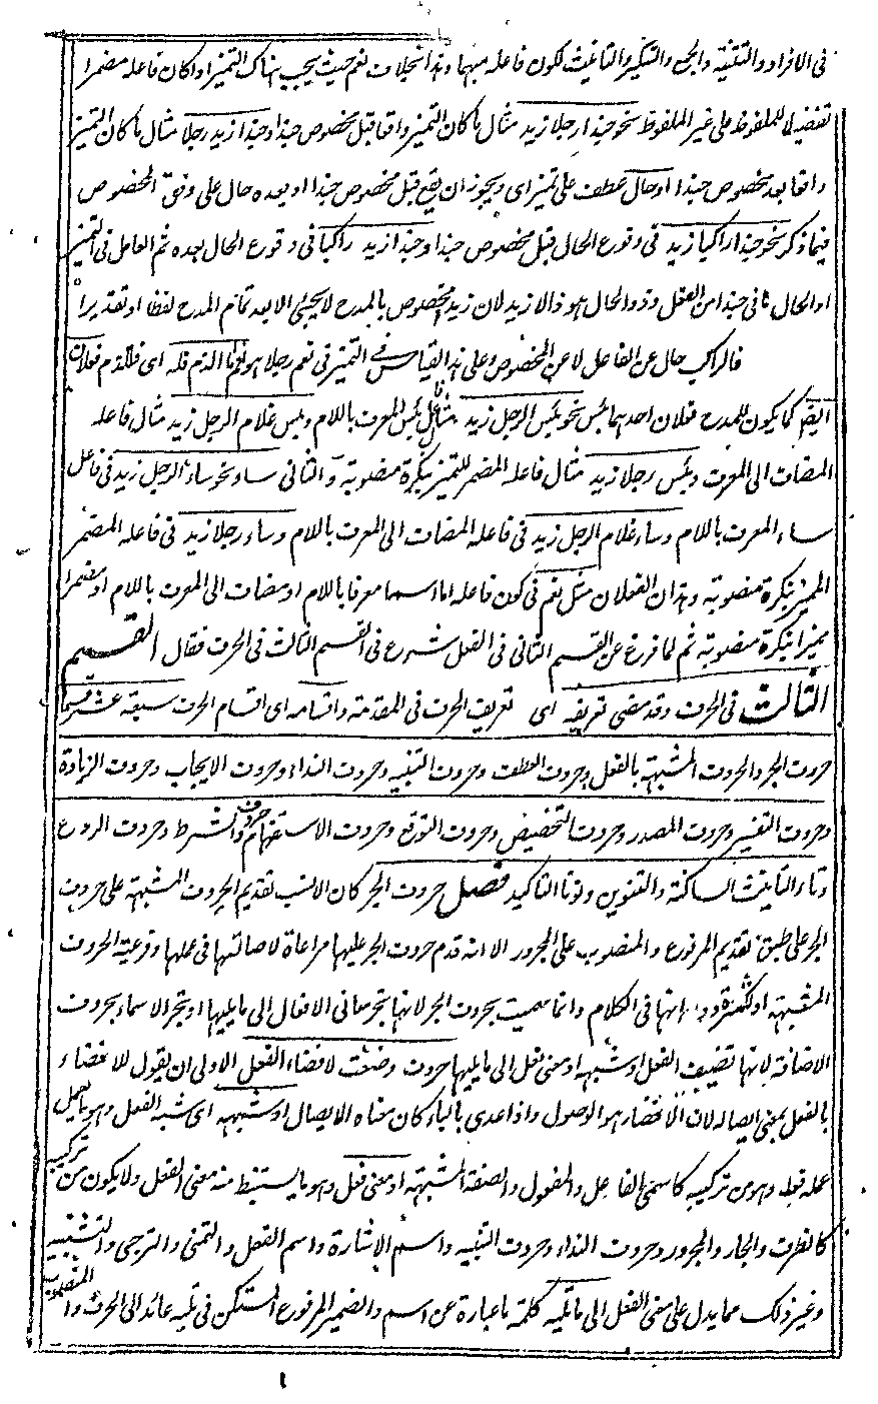 فى الافراد والتثنية والجمع والتذكير والتانيث لكون فاعله مبهما وهذا بخلاف نعم حيث يجب هناك التميز اذا كان فاعله مضمرا
تفضيلا للملفوظ على غير الملفوظ نحو حبذا رجلا زيد مثال ما كان التميز واقعا قبل مخصوص حبذا وحبذا زيد رجلا مثال ما كان التميز
واقعا بعد مخصوص حبذا او حال عطف على تميز اى ويجوز ان يقع قبل مخصوص حبذا او بعده حال على وفق المخصوص
فيما ذكر نحو حبذا راكبا زيد فى وقوع الحال قبل مخصوص حبذا وحبذا زيد راكبا فى وقوع الحال بعده ثم العامل فى التميز
او الحال ما فى حبذا من الفعل وذو الحال هو ذا لا زيد لان زيد المخصوص بالمدح لا يجئ الا بعد تمام المدح لفظا او تقديرا
فالراكب حال عن الفاعل لا عن المخصوص وعلى هذا القياس فى التميز فى نعم رجلا هو واما الذم فله اى فللذم فعلان
ايضا كما يكون للمدح فعلان احدهما بئس نحو بئس الرجل زيد مثال فاعل بئس المعرف باللام وبئس غلام الرجل زيد مثال فاعله
المضاف الى المعرف وبئس رجلا زيد مثال فاعله المضمر المميز بنكرة منصوبة والثانى ساء نحو ساء الرجل زيد فى فاعل
ساء المعرف باللام وساء غلام الرجل زيد فى فاعله المضاف الى المعرف باللام وساء رجلا زيد فى فاعله المضمر
المميز بنكرة منصوبة وهذان الفعلان مثل نعم فى كون فاعله اما اسما معرفا باللام او مضاف الى المعرف باللام او مضمرا
مميزا بنكرة منصوبة ثم لما فرغ عن القسم الثانى فى الفعل شرع فى القسم الثالث فى الحرف فقال القسم
الثالث فى الحرف وقد مضى تعريفه اى تعريف الحرف فى المقدمة واقسامه اى اقسام الحرف سبعة عشر قسما
حروف الجر والحروف المشبهة بالفعل وحروف العطف وحروف التنبيه وحروف النداء وحروف الايجاب وحروف الزيادة
وحروف التفسير وحروف المصدر وحروف التحضيض وحروف التوقع وحروف الاستفهام وحروف الشرط وحروف الردع
وتاء التانيث الساكنة والتنوين ونونا التاكيد فصل حروف الجر كان الانسب تقديم الحروف المشبهة على حروف
الجر على طبق تقديم المرفوع والمنصوب على المجرور الا انه قدم حروف الجر عليها مراعاة لاصالتها فى عملها وفرعية الحروف
المشبهة او لكثرة دورانها فى الكلام وانما سميت بحروف الجر لانها تجر معانى الافعال الى ما يليها او تجر الاسماء بحروف
الاضافة لانها تضيف الفعل او شبهه او معنى فعل الى ما يليها حروف وضعت لافضاء الفعل الاولى ان يقول للافضاء
بالفعل بمعنى ايصاله لان الافضاء هو الوصول واذا عدى بالباء كان معناه الايصال او شبهه اى شبه الفعل وهو ما يعمل
عمله فعله وهو من تركيبه كاسمى الفاعل والمفعول والصفة المشبهة او معنى فعل وهو ما يستنبط منه معنى الفعل ولا يكون من تركيبه
كالظرف والجار والمجرور وحروف النداء وحروف التنبيه واسم الاشارة واسم الفعل والتمنى والترجى والتشبيه
وغير ذلك مما يدل على معنى الفعل الى ما تليه كلمة ما عبارة عن اسم والضمير المرفوع المستكن فى تليه عائد الى الحرف والمنصوب
١